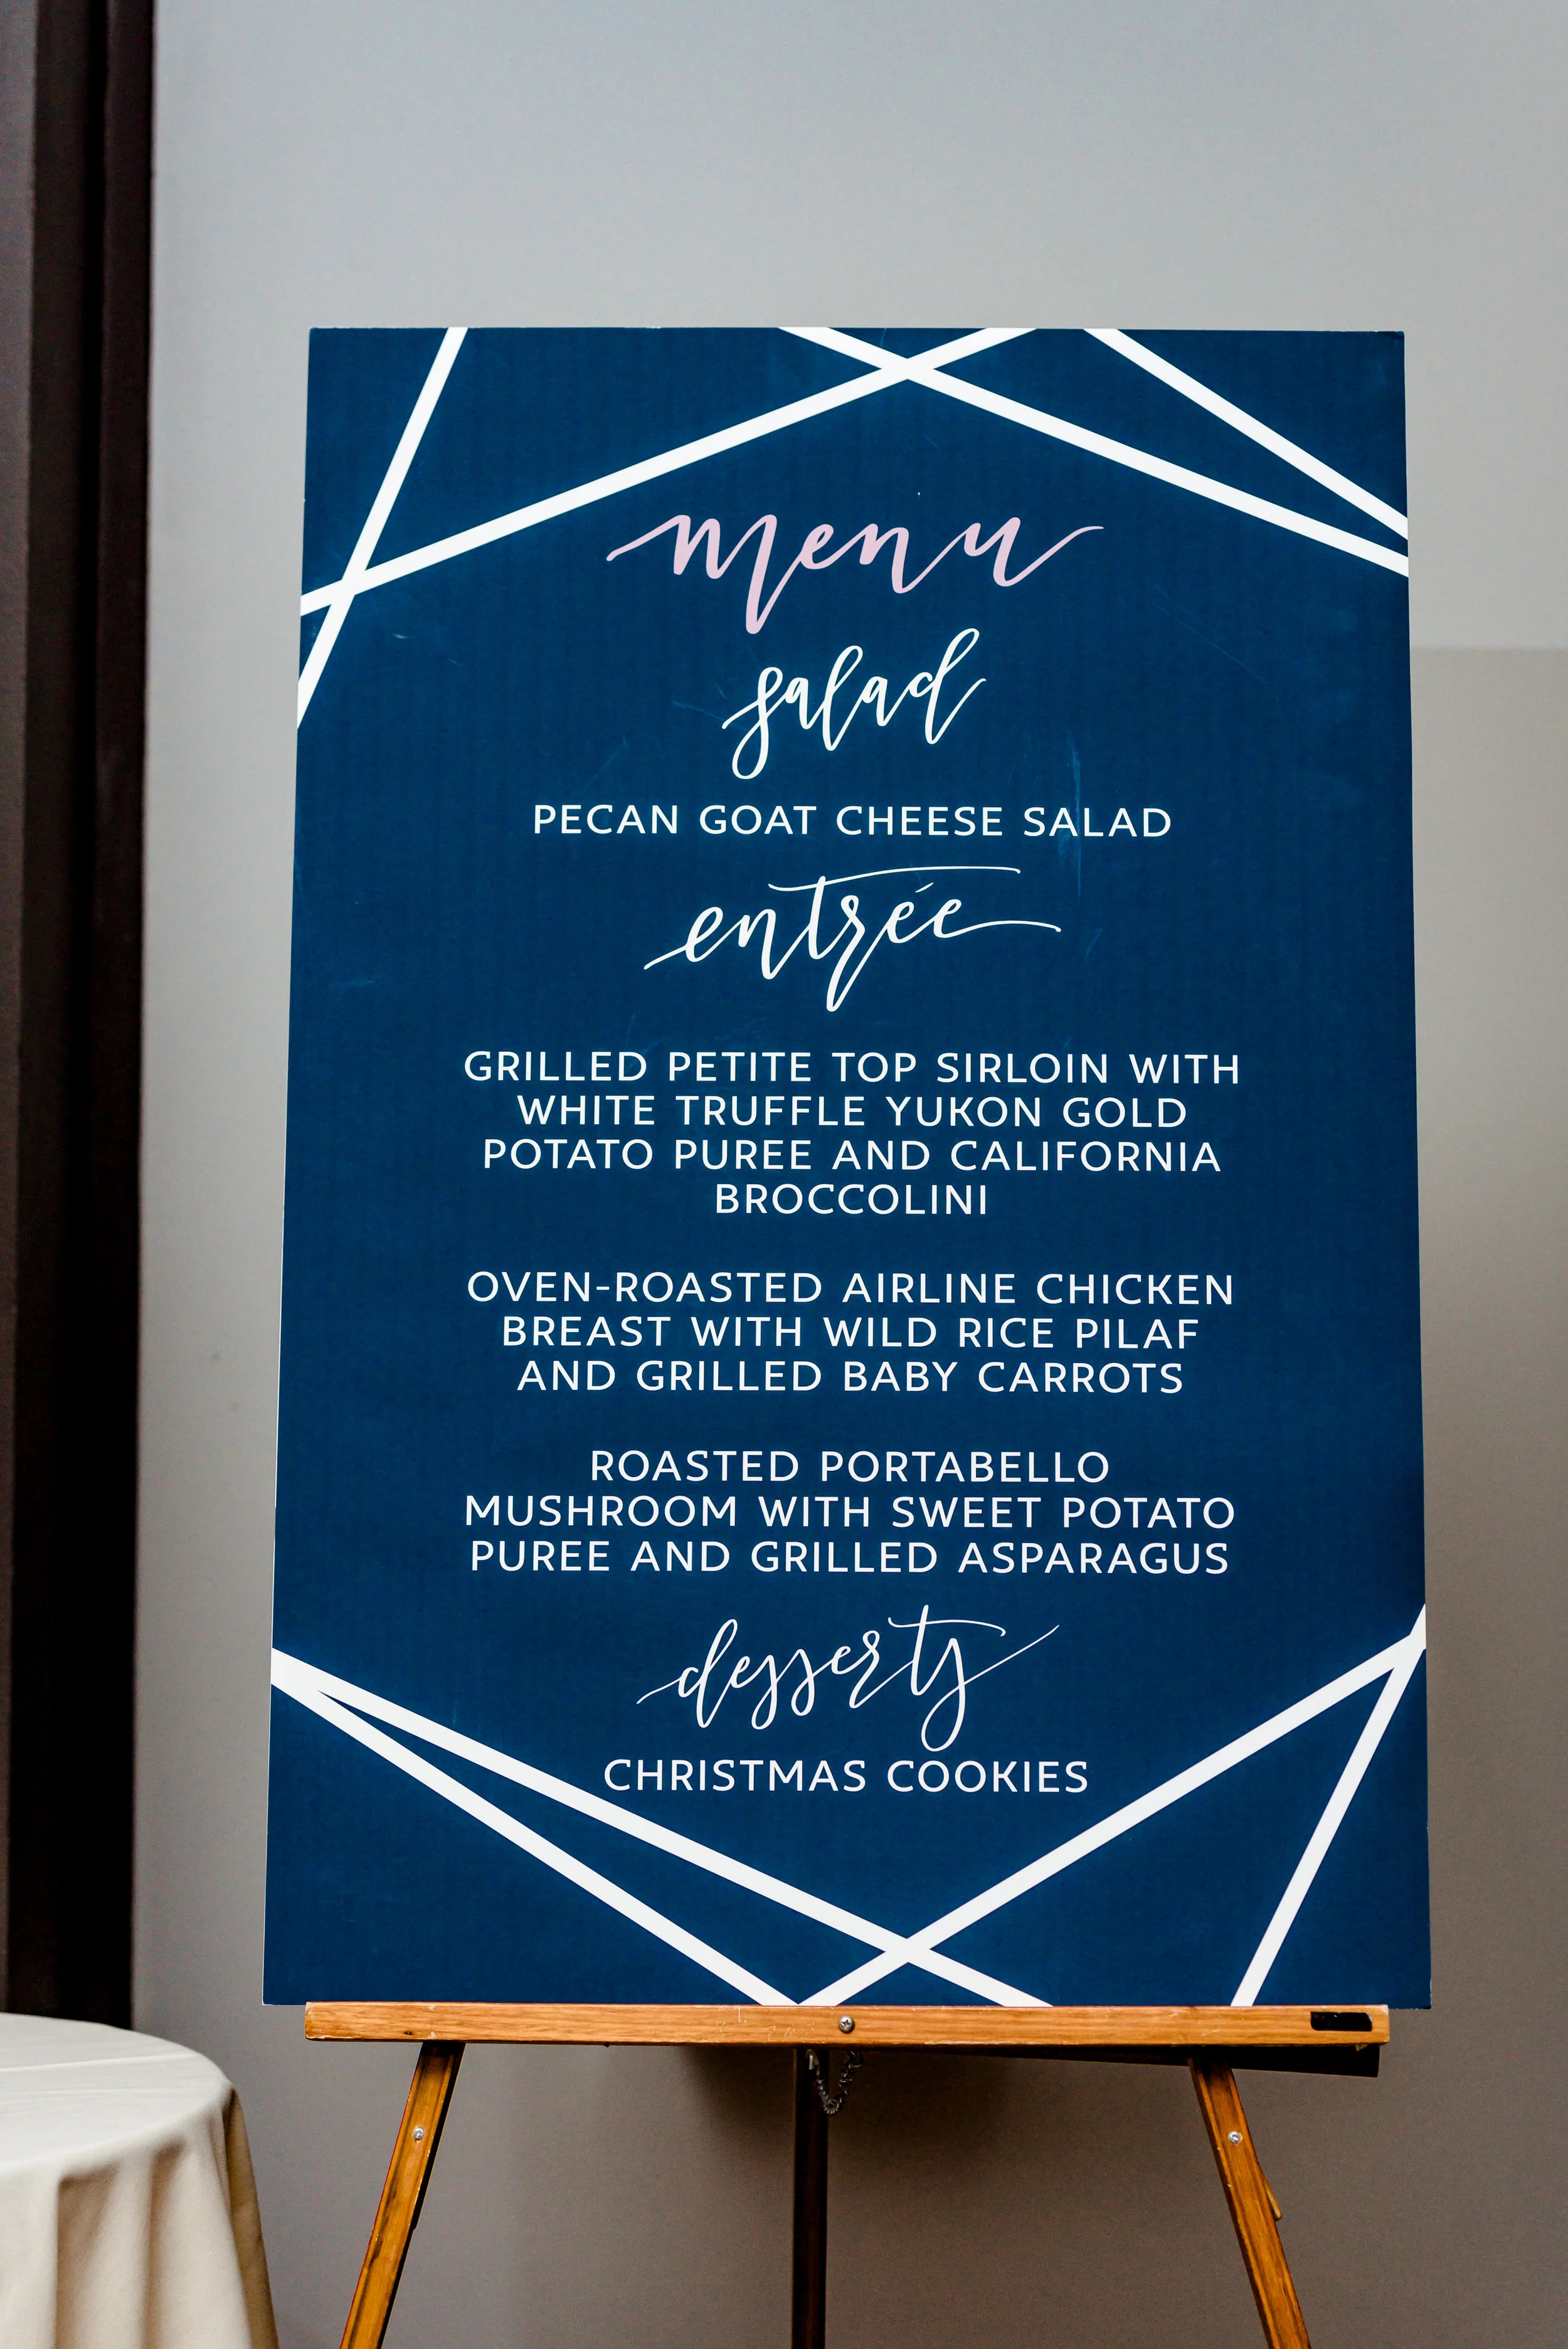 menu
salad
PECAN GOAT CHEESE SALAD
entrée
GRILLED PETITE TOP SIRLOIN WITH
WHITE TRUFFLE YUKON GOLD
POTATO PUREE AND CALIFORNIA
BROCCOLINI
OVEN-ROASTED AIRLINE CHICKEN
BREAST WITH WILD RICE PILAF
AND GRILLED BABY CARROTS
ROASTED PORTABELLO
MUSHROOM WITH SWEET POTATO
PUREE AND GRILLED ASPARAGUS
dessert
CHRISTMAS COOKIES